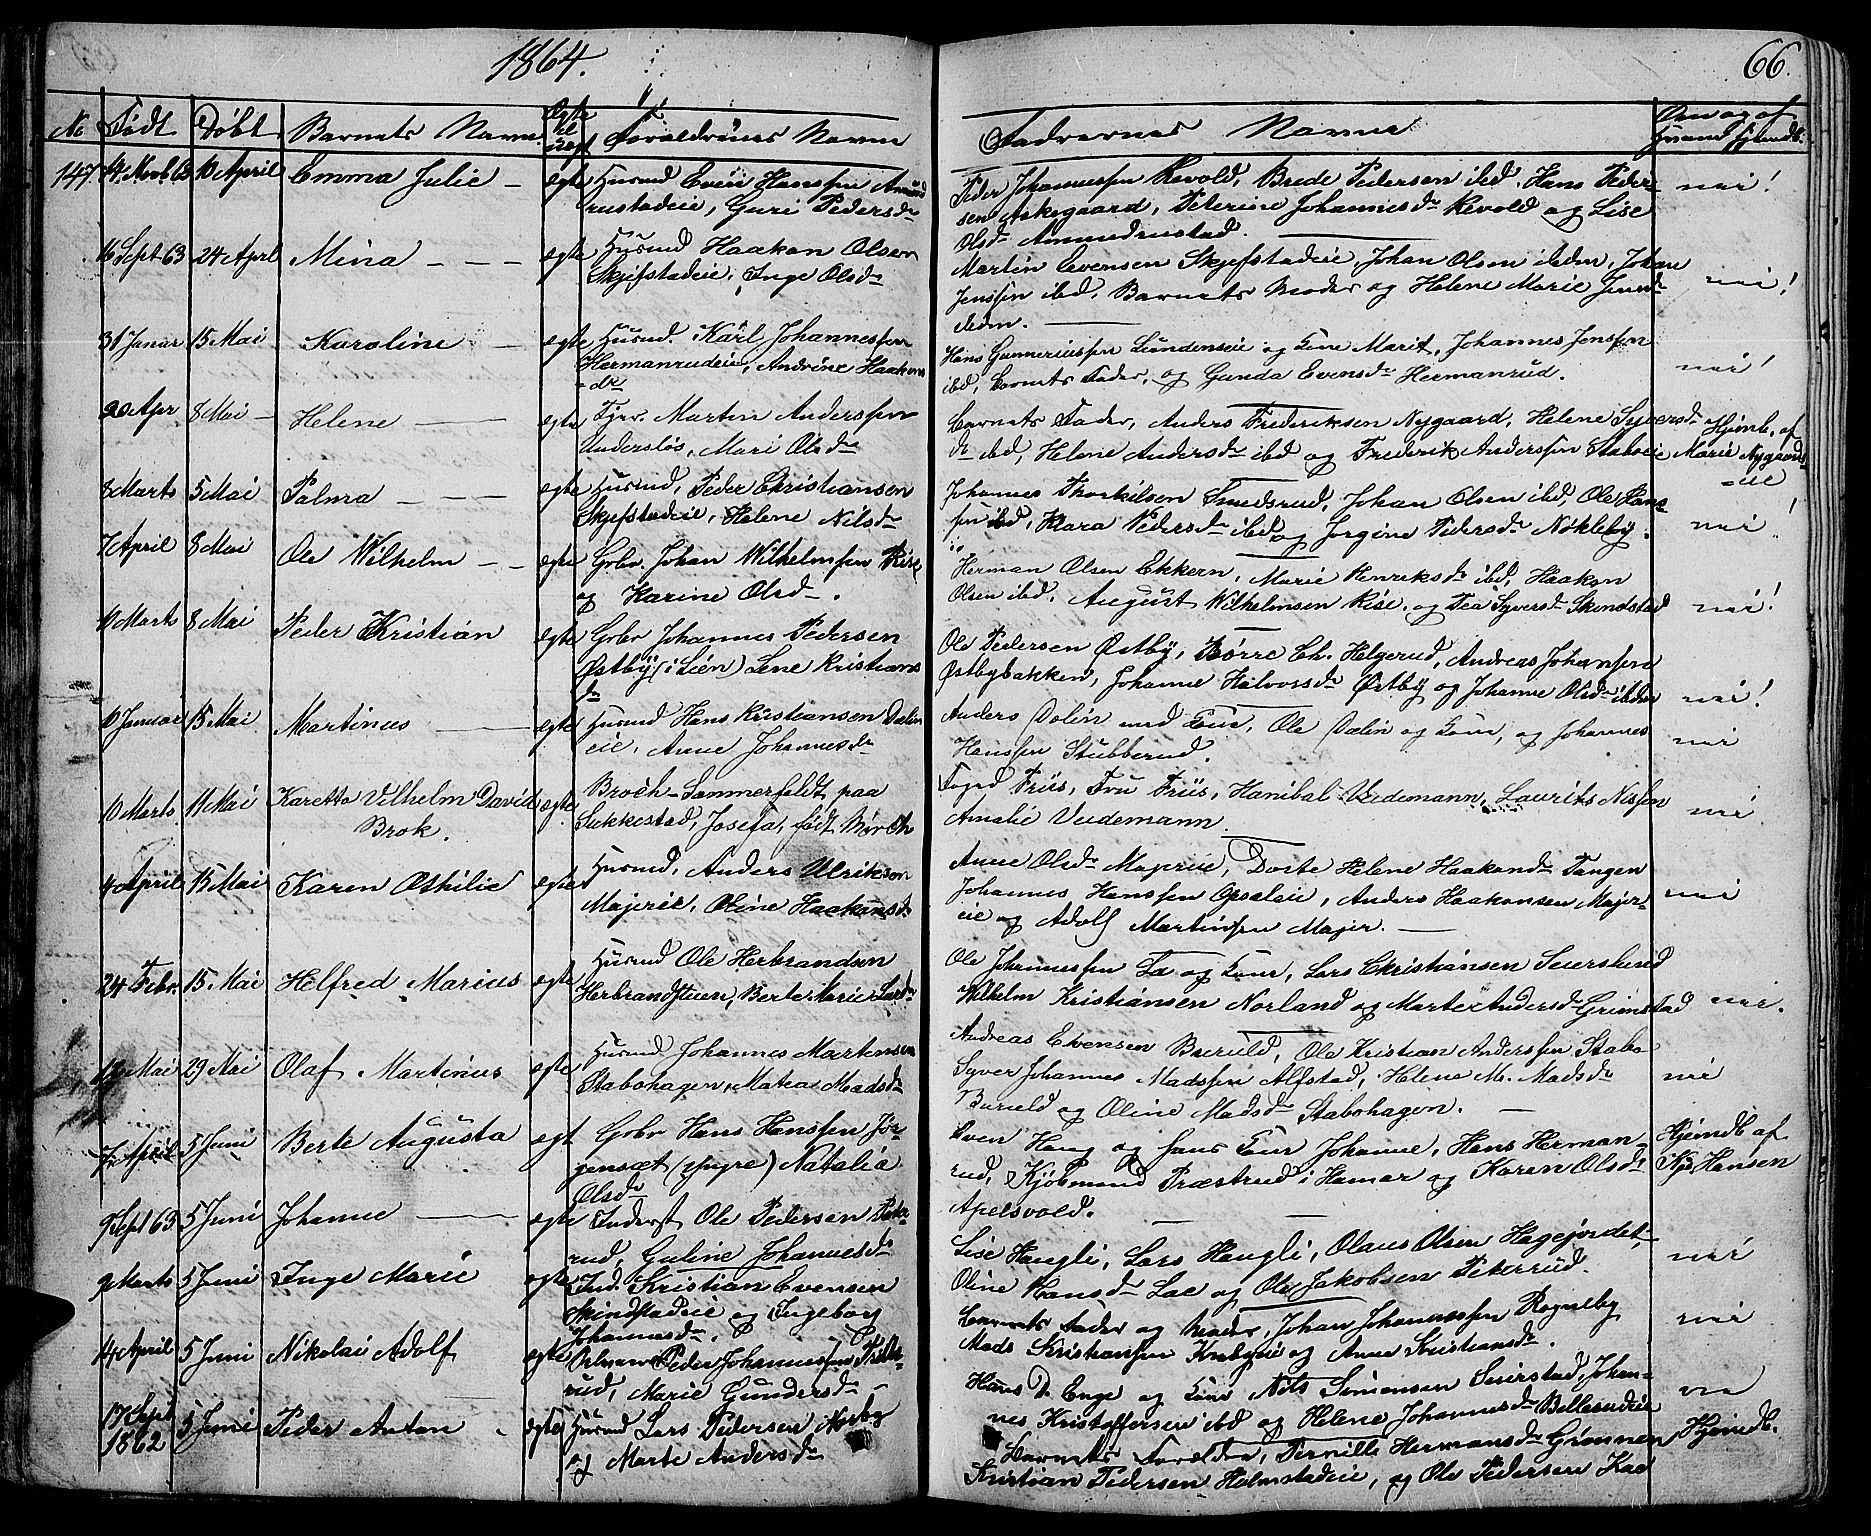 1864.
66.
No Født Døbt Barnets Navne Egte el. uegt Forældrenes Navne Faddernes Navne Om og af hvem hjemdb.
147 14 Novb 63 10 April Emma Julie egte Husmd Even Hanssen Amund
rustadeie, Guri Pedersdr
Peder Johannessen Kevold, Brede Pedersen ibd. Hans Peder-
sen Askegaard, Peterine Johannesdr Kevold og Lise
Olsdr Ammudrustad.
nei!
16 Sept 63 24 Aprl Mina egte Husmd Haakon Olsen
Skjefstadeie, Inge Olsdr
Martin Evensen Skjefstadeie, Johan Olsen ibdm, Johan
Jenssen ibd, Barnets Moder og Helene Marie
nei!
31 Januar 15 Mai Karoline egte Husmd. Karl Johannessen
Hermanrudeie, Andrine Haakons
dr
Hans Gunneriussen Lundenseie og Kone Marit, Johannes Jenssen
ibd, Barnets Fader, og Gunda Evensdr Hermanrud.
nei!
20 Apr 8 Mai Helene egte Tjen. Martin Anderssen
Andersløs, Mari Olsdr
Barnets Fader, Anders Frederiksen Nygaard, Helene Syversdr
dr ibd, Helene Andersdr ibd og Frederik Anderssen Staboeie
Hjemb. af
Marie Nygaards-
eie
8 Marts 5 Mai Palma egte Husmd, Peder Christiansen
Skjefstadeie, Helene Nilsdr
Johannes Thorkilsen Smedsrud, Johan Olsen ibd, Ole Hans-
sen ibd, Klara Pedersdr ibd og Jørgine Pedersdr Nøkleby.
nei!
7 April 8 Mai Ole Wilhelm egte Grbr. Johan Wilhelmsen Rise
og Karine Olsdr.
Herman Olsen Ekkern, Marie Henriksdr ibd, Haakon
Olsen ibd, August Wilhelmsen Rise, og Tea Syversdr Skindstad
nei!
10 Marts 8 Mai Peder Kristian egte Grbr Johannes Pedersen
Østby (i Lien) Lene Kristians
dr
Ole Pedersen Østby, Børre Ch. Helgerud, Andreas Johansen
Østbybakken, Johanne Halvorsdr Østby og Johanne Olsdr ibdm
nei!
10 Januar 15 Mai Martinus egte Husmd Hans Kristiansen Dælin
eie, Anne Johannesdr
Anders Dælin med Kone, Ole Dælin og Kone, og Johannes
Hanssen Stubberud.
nei
10 Marts 11 Mai Karetto Vilhelm David
Brok.
egte Broch-Sommerfeldt paa
Sukkestad, Josefa, født
Foged Friis, Fru Friis, Hanibal Veidemann, Laurits Nissen
Amalie Veidemann
nei
4 April 15 Mai Karen Othilie egte Husmd, Anders Ulrikson
Majereie, Oline Haakansdr
Anne Olsdr Majereie, Dorte Helene Haakandr Tangen
Johannes Hanssen Opsaleie, Anders Haakonsen Majer-
eie og Adolf Martinsen Majer.
nei
24 Febr. 15 Mai Helfred Marius egte Husmd Ole Herbrandsen
Herbrandstuen, Berte Marie Larsdr
Ole Johannessen Læ og Kone, Lars Christiansen
Wilhelm Kristiansen Norland og Marte Andersdr Grimstad
nei.
12 Mai 29 Mai Olaf Martinus egte Husmd Johannes Martinsen
Stabohagen, Matea Madsdr
Andreas Evensen Buruld, Ole Kristian Anderssen Stabo-
Syver Johannes Madssen Alfstad, Helene M. Madsdr
Buruld og Oline Madsdr Stabohagen.
nei
7 April 5 Juni Berte Augusta egt Grbr Hans Hanssen Jør-
gensæt (yngre) Natalia
Olsdr
Even Haug og hans Kone Johanne, Hans Herman-
rud, Kjøbmand Præstrud i Hamar og Karen Olsdr
Apelsvold.
Hjemdb af
Hansen
9 Sept 63 5 Juni Johanne egte Inderst Ole Pedersen Peke-
rud, Guline Johannesdr
Lise Haugli, Lars Haugli, Olaus Olsen Hagejordet,
Oline Hansdr Lae og Ole Jakobsen Pekerrud.
nei
9 Marts 5 Juni Inge Marie egte Ind. Kristian Evensen
Skindstadeie og Ingeborg
Johannesdr.
Barnets Fader og Moder, Johan Johannessen Rogneby
Mads Kristiansen Krabyeie og Anne Kristiansdr.
nei
14 April 5 Juni Nikolai Adolf egte Peder Johannessen
rud, Marie Gundersdr
Hans D. Enge og Kone, Nils Simensen Seierstad, Johan-
nes Kristoffersen ibd og Helene Johannesdr Billerudeie
nei
17 Sept
1862
5 Juni Peder Anton egte Husmd Lars Pedersen Narby
og Marte Andersdr
Barnets Forældre, Pernille Hermansdr Grønnen
Kristian Pedersen Holmstadeie, og Ole Pedersen Lae
Hjemdb.